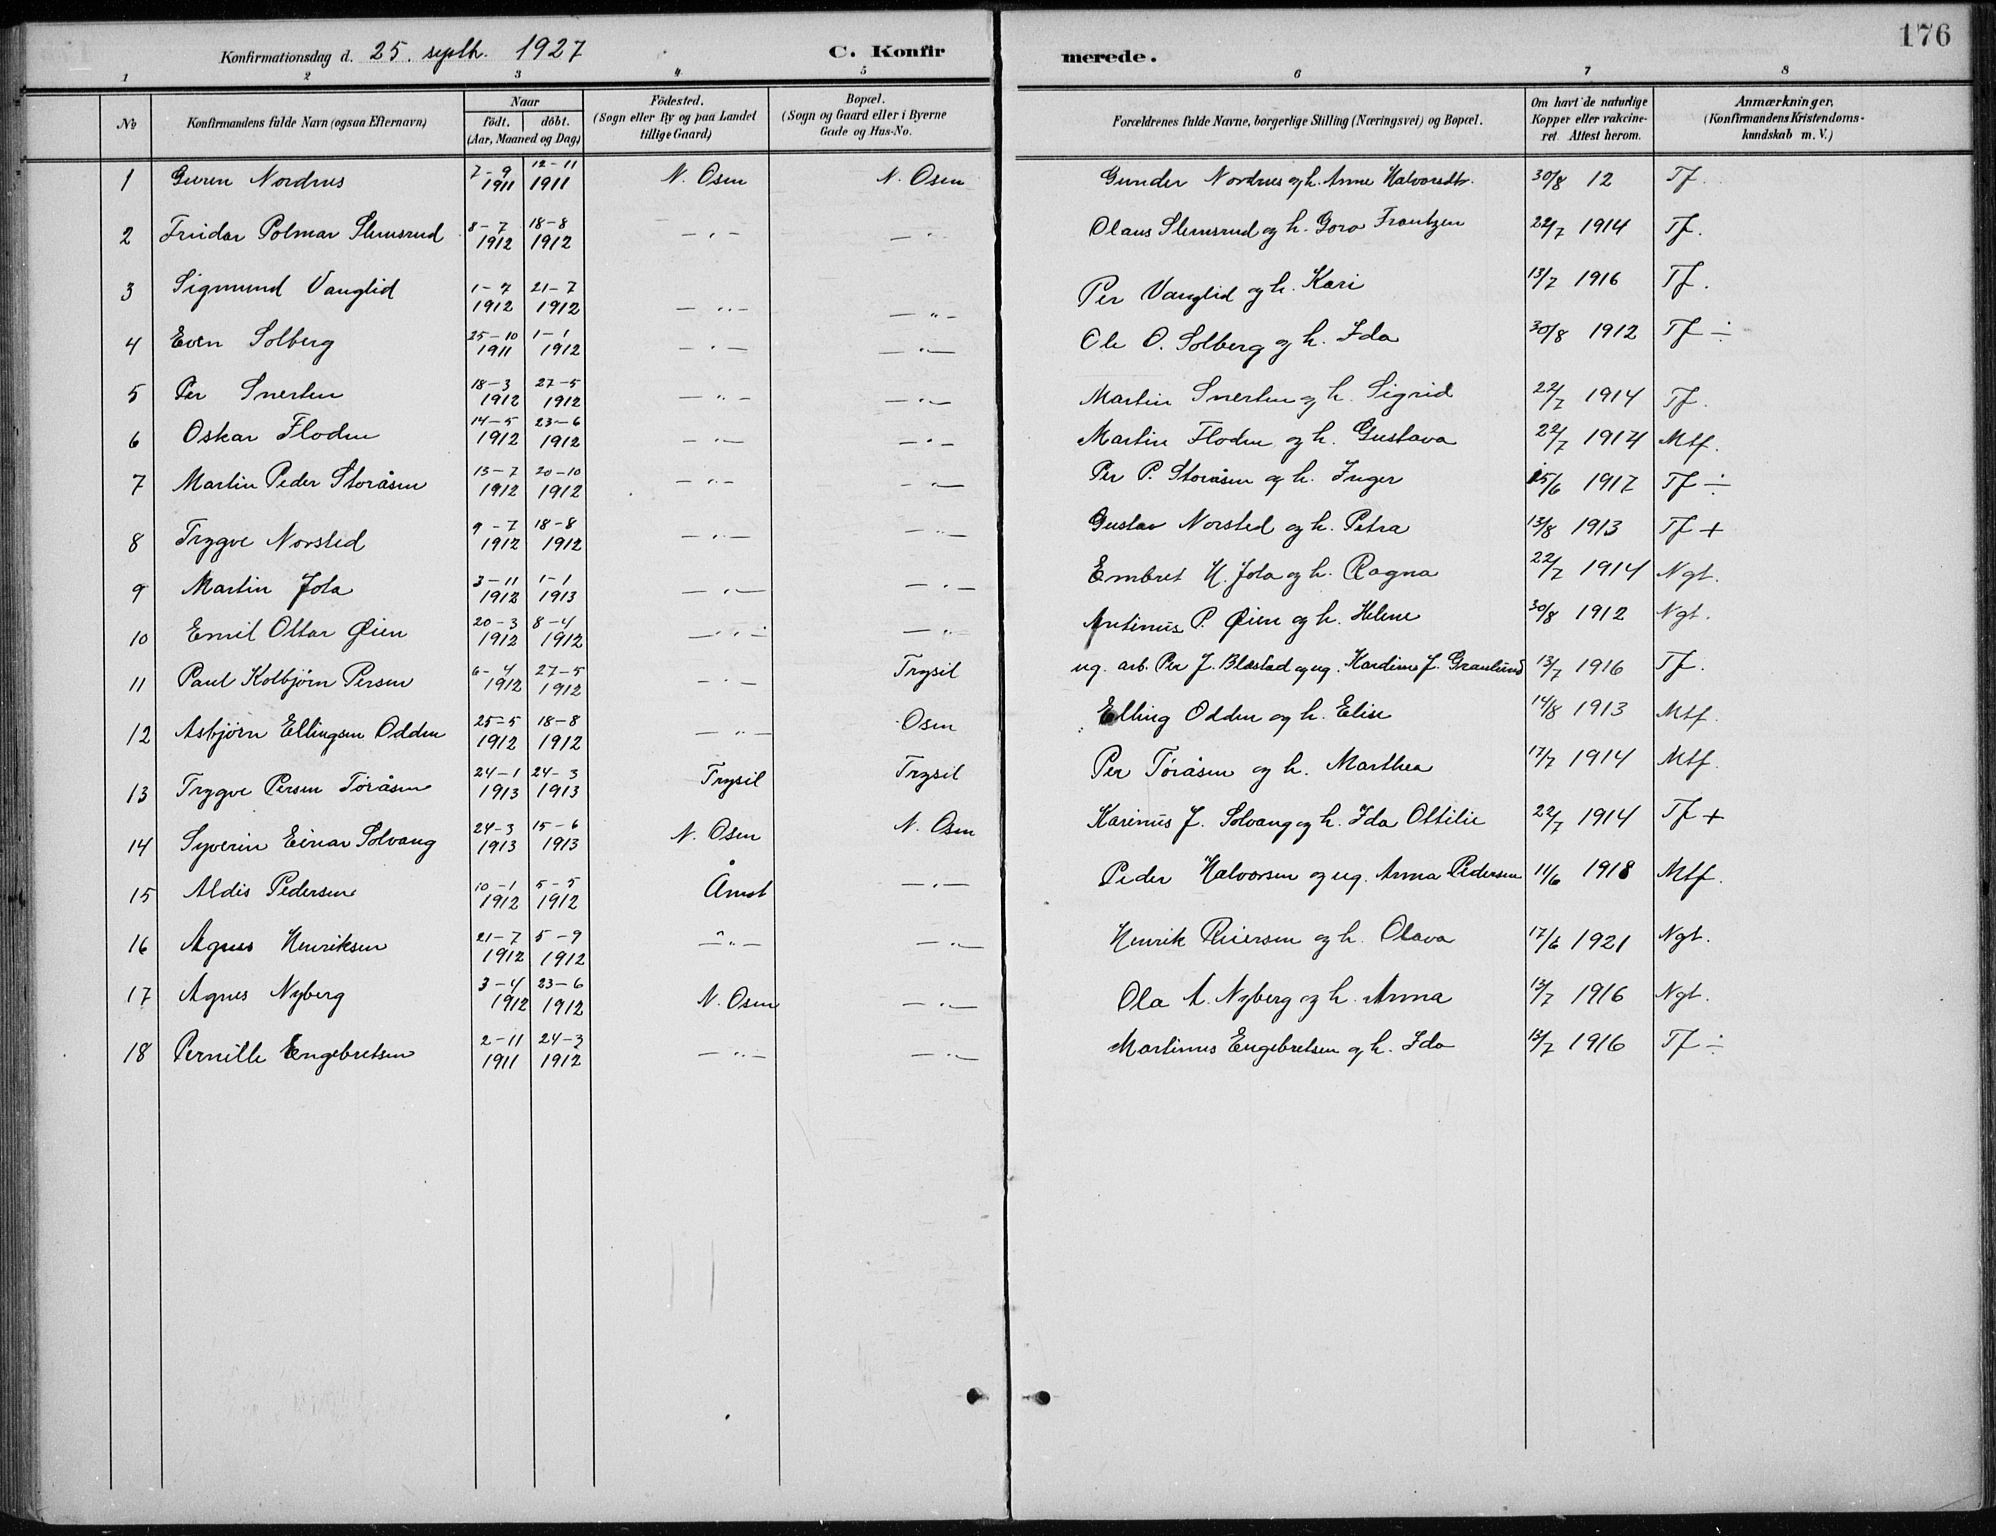 176
Konfirmationsdag d. 25. septb. 1927 C. Konfir merede.
1 2 3 4 5 6 7 8
No Konfirmandens fulde Navn (ogsaa Efternavn) Naar födt. döbt. (Aar, Maaned og Dag) Födested. (Sogn eller By og paa Landet tillige Gaard) Bopæl. (Sogn og Gaard eller i Byerne Gade og Hus-No. Forældrenes fulde Navne, borgerlige Stilling (Næringsvei) og Bopæl. Om havt de naturlige Kopper eller vakcineret. Attest herom. Anmærkninger, (Konfirmandens Kristendomskundskab m. V.)
1 Guren Nordnes 7-9 1911 12-11 1911 N. Osen N. Osen Gunder Nordnes og h. Anne Halvorsdtr. 30/8 12 Tf.
2 Fridar Polmar Slemsrud 8-7 1912 18-8 1912 —〃— —〃— Olaus Slemsrud og h. Goro Frantzen 22/7 1914 Tf.
3 Sigmund Vanglid 1-7 1912 21-7 1912 —〃— —〃— Per Vanglid og h. Kari 13/7 1916 Tf.
4 Even Solberg 25-10 1911 1-1 1912 —〃— —〃— Ole O. Solberg og h. Ida 30/8 1912 Tf ÷
5 Per Snerten 18-3 1912 27-5 1912 —〃— —〃— Martin Snerten og h. Sigrid 22/7 1914 Tf.
6 Oskar Floden 14-5 1912 23-6 1912 —〃— —〃— Martin Floden og h. Gustava 22/7 1914 Mtf.
7 Martin Peder Storåsen 13-7 1912 20-10 1912 —〃— —〃— Per P. Storåsen og h. Inger 15/6 1917 Tf ÷
8 Trygve Norsted 9-7 1912 18-8 1912 —〃— —〃— Gustav Norsted og h. Petra 13/8 1913 Tf +
9 Martin Jota 3-11 1912 1-1 1913 —〃— —〃— Embret H. Jota og h. Ragna 22/7 1914 Ngt.
10 Emil Ottar Øien 20-3 1912 8-4 1912 —〃— —〃— Antinus P. Øien og h. Helene 30/8 1912 Ngt.
11 Paul Kolbjørn Persen 6-4 1912 27-5 1912 —〃— Trysil ug. arb. Per J. Blæstad og ug. Kardine J. Granlund 13/7 1916 Tf.
12 Asbjørn Ellingsen Odden 25-5 1912 18-8 1912 —〃— Osen Elling Odden og h. Elise 14/8 1913 Mtf.
13 Trygve Persen Toråsen 24-1 1913 24-3 1913 Trysil Trysil Per Toråsen og h. Marthea 17/7 1914 Mtf.
14 Syverin Einar Solvang 24-3 1913 15-6 1913 N. Osen N. Osen Karinus J. Solvang og h. Ida Ottilie 22/7 1914 Tf +
15 Aldis Pedersen 10-1 1912 5-5 1912 Åmot —〃— Peder Halvorsen og ug. Anna Pedersen 11/6 1918 Mtf.
16 Agnes Henriksen 21-7 1912 5-9 1912 —〃— —〃— Henrik Reiersen og h. Olava 17/6 1921 Ngt.
17 Agnes Nyberg 3-4 1912 23-6 1912 N. Osen —〃— Ola A. Nyberg og h. Anna 13/7 1916 Ngt.
18 Pernille Engebretsen 2-11 1911 24-3 1912 —〃— —〃— Martinus Engebretsen og h. Ida 13/7 1916 Tf ÷